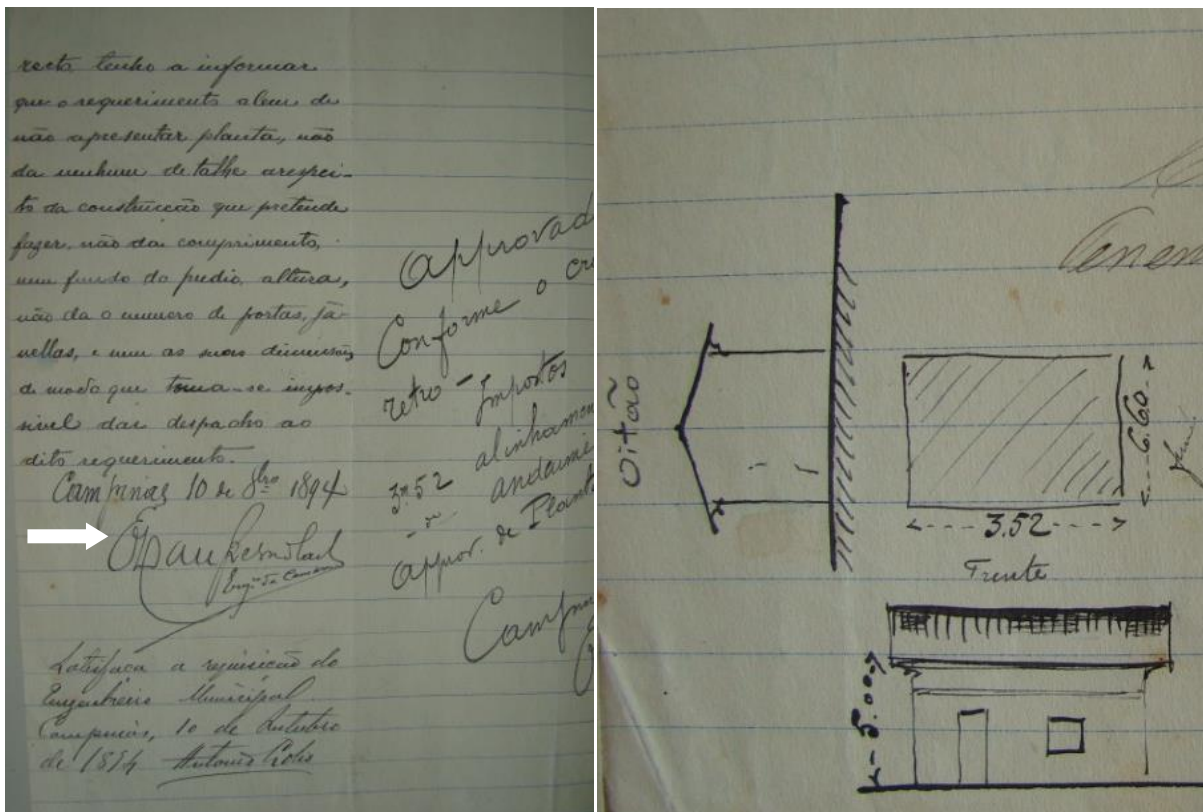 recto tenho a informar
que o requerimento alem de
não apresentar planta, não
da nenhum detalhe arespei-
to da construcção que pretende
fazer, não da comprimento,
nem fundo do predio, altura,
não da o numero de portas, ja-
nellas, e nem as suas dimensões
de modo que torna-se impos-
sivel dar despacho ao
dito requerimento.
Campinas 10 de 8bro 1894
Engº da Camara
Satisfaça a requisição do
Engenheiro Municipal
Campinas, 10 de Outubro
de 1894 Antonio
Approvad
Conforme o
retro - Impostos
alinhamen
3m52 andaime
approv. de Planta
Campin
Oitão
6.60
3.52
Frente
5.00